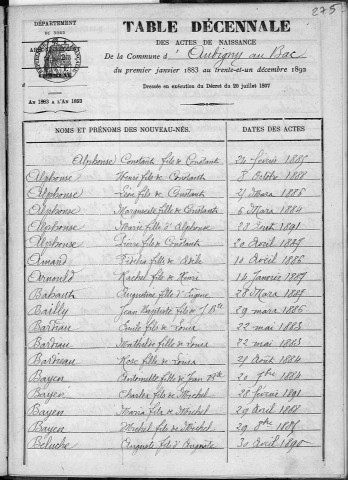 275
DÉPARTEMENT
DU NORD
TABLE DÉCENNALE
DES ACTES DE NAISSANCE
De la Commune d' Aubigny au Bac
du premier janvier 1883 au trente-et-un décembre 1892
Dressée en exécution du Décret du 20 juillet 1807
An 1883 à l'An 1893
NOMS ET PRÉNOMS DES NOUVEAU-NÉS. DATES DES ACTES
Alphonse Constant fils de Constant 24 février 1885
Alphonse Henri fils de Constant 8 Octobre 1888
Alphonse fils de Constant 21 Mars 1886
Alphonse Marguerite fille de Constant 6 Mars 1884
Alphonse Marie fille d'Alphonse 28 Août 1891
Alphonse Pierre fils de Constant 20 Avril 1887
Amand fils de 10 Avril 1886
Arnould Rachel fille de Henri 14 Janvier 1887
Augustine fille d'Eugène 28 Mars 1885
Bailly Jean Baptiste fils de J. Bte 29 mars 1886
Bardiau Emile fils de Louis 22 mai 1883
Bardiau Mathilde fille de Louis 22 mai 1883
Bardiau Rose fille de Louis 21 Août 1884
Bayen Antoinette fille de Jean Bte 20 1884
Bayen Charles fils de Michel 28 février 1891
Bayen Maria fille de Michel 29 Avril 1888
Bayen Michel fils de Michel 29 8bre 1885
Beluche Auguste fils d'Auguste 30 Avril 1890